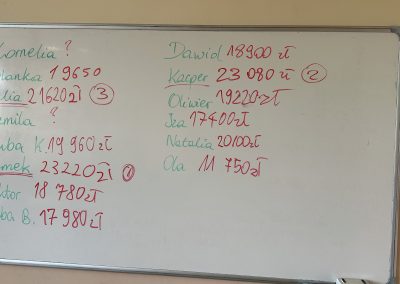 Kornelia ?
lanka 19650
lia 21620zł ③
emila ?
uba K. 19 960zł
mek 23220zł ①
tor 18 780zł
uba B. 17 980zł
Dawid 18900 zł
Kacper 23 080 zł ②
Oliwier 19220zł
Iza 17400zł
Natalia 20100zł
Ola 11 750zł